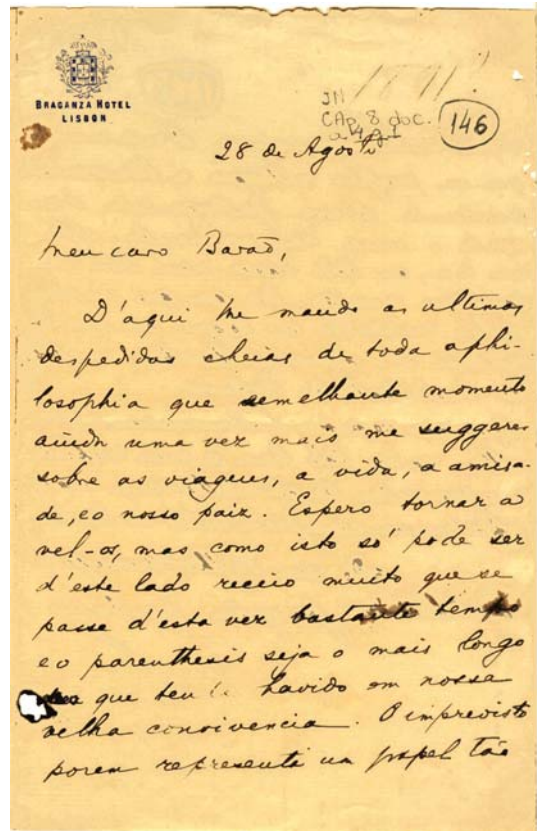 BRAGANZA HOTEL
LISBON
1891
JN
CAp 8 doc.
146
28 de Agosto
Meu caro Barão,
D'aqui lhe mando as ultimas
despedidas cheias de toda a phi-
losophia que semelhante momento
ainda uma vez mais me suggere
sobre as viagens, a vida, a amisa-
de, e o nosso paiz. Espero tornar a
vel-os, mas como isto só pode ser
d'este lado receio muito que se
passe d'esta vez bastante tempo
e o parenthesis seja o mais longo
que tenha havido em nossa
velha convivencia. O imprevisto
porem representa um papel tão